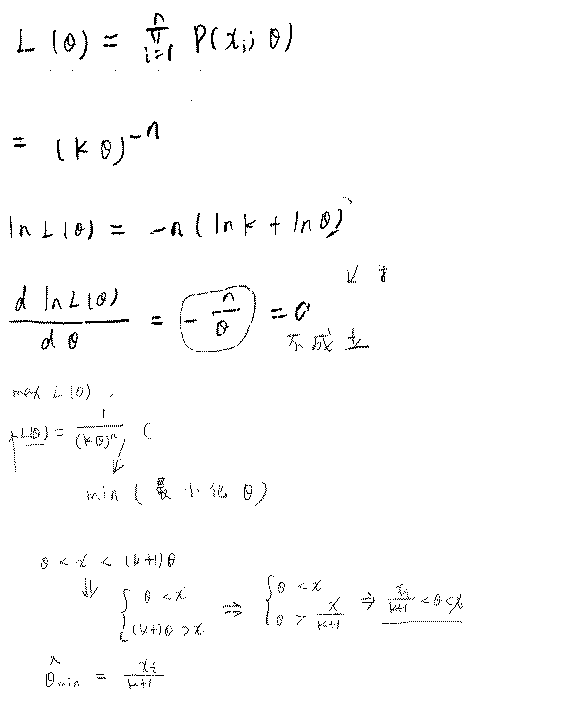 L(θ) = ∏_{i=1}^{n} P(x_i; θ)
= (kθ)^{-n}
ln L(θ) = -n(ln k + ln θ)
d ln L(θ) / dθ = -n/θ = 0
不成立
max L(θ)
L(θ) = 1/(kθ)^n
min (最小化 θ)
θ < x < (k+1)θ
⇓ { θ < x, (k+1)θ > x ⇒ { θ < x, θ > x/(k+1) ⇒ x_i/(k+1) < θ < x
θ̂_min = x_i/(k+1)